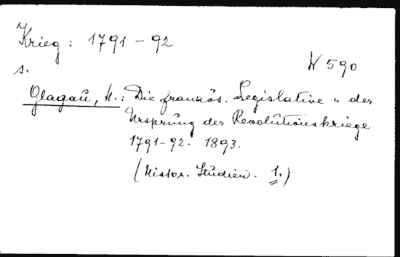 Krieg: 1791-92
W 590
s.
Glagau, H.: Die französ. Legislative u der
Ursprung der Revolutionskriege
1791-92. 1893.
(Histor. Studien. 1.)